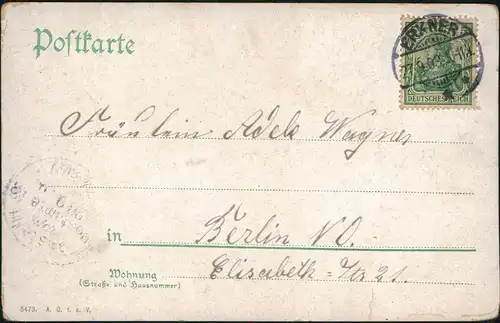 Postkarte
ERKNER
DEUTSCHES REICH
Fräulein Adele Wagner
in Berlin NO.
Wohnung
(Straße und Hausnummer)
Elisabeth-Str 21.
5473. A. O. f. a. V.